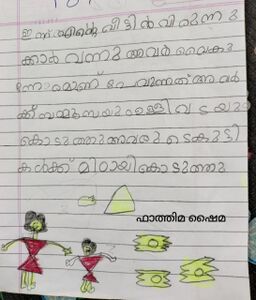 ഇന്ന് എന്റെ വീട്ടിൽ വിരുന്നു
ക്കാർ വന്നു അവർ വൈകു
ന്നേരമാണ് പോവുന്നത് അവർ
ക്ക് സമൂസയും ഉള്ളിവടയും
കൊടുത്തു അവരുടെ കുട്ടി
കൾക്ക് മിഠായി കൊടുത്തു
ഫാത്തിമ ഷൈമ